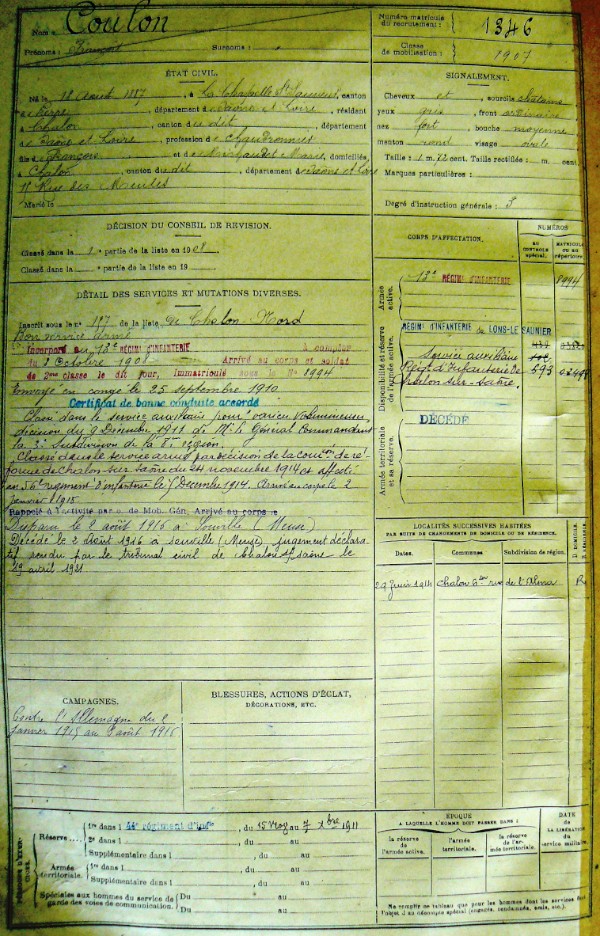 Nom : Coulon
Prénoms : François Surnoms :
Numéro matricule du recrutement : 1346
Classe de mobilisation : 1907
ÉTAT CIVIL.
Né le 18 Août 1887, à La Chapelle St Sauveur, canton
de Pierre, département de Saône et Loire, résidant
à Chalon, canton du dit, département
de Saône et Loire, profession de Chaudronnier
fils de François et de Marie, domiciliés
à Chalon, canton du dit, département de Saône et Loire
11 Rue des Meules
Marié le
SIGNALEMENT.
Cheveux et sourcils châtains
yeux gris, front ordinaire
nez fort, bouche moyenne
menton rond visage ovale
Taille : 1 m. 72 cent. Taille rectifiée : m. cent.
Marques particulières :
Degré d'instruction générale : 3
DÉCISION DU CONSEIL DE REVISION.
Classé dans la 1e partie de la liste en 1908
Classé dans la partie de la liste en 19
CORPS D'AFFECTATION.
NUMÉROS
AU CONTROLE SPÉCIAL.
MATRICULE OU AU RÉPERTOIRE
Armée active.
13e RÉGIMENT D'INFANTERIE
8994
Disponibilité et réserve de l'armée active.
RÉGIMENT D'INFANTERIE de LONS-LE-SAUNIER
Service auxiliaire
Régt d'Infanterie de
Chalon-sur-Saône.
593
Armée territoriale et sa réserve.
DÉCÉDÉ
DÉTAIL DES SERVICES ET MUTATIONS DIVERSES.
Inscrit sous le n° 117 de la liste de Chalon-Nord
Bon service armé
Incorporé au 13e RÉGIMENT D'INFANTERIE à compter
du Octobre 1908 Arrivé au corps et soldat
de 2me classe le dit jour, immatriculé sous le N° 8994
Envoyé en congé le 25 septembre 1910
Certificat de bonne conduite accordé
Classé dans le service auxiliaire pour varices volumineuses,
décision du 9 Décembre 1911 de Mr le Général Commandant
la Subdivision de la 8e région.
Classé dans le service armé par décision de la de ré-
forme de Chalon sur Saône du 24 novembre 1914 et affecté
au 56e régiment d'infanterie le Décembre 1914. Arrivé au corps le 2
janvier 1915
Rappelé à l'activité par o. de Mob. Gén. Arrivé au corps le
Disparu le 2 août 1916 à Souville (Meuse)
Décédé le 2 Août 1916 à Souville (Meuse) jugement déclara-
tif rendu par le tribunal civil de Chalon s/ Saône le
19 avril 1921
LOCALITÉS SUCCESSIVES HABITÉES
PAR SUITE DE CHANGEMENTS DE DOMICILE OU DE RÉSIDENCE.
Dates. Communes. Subdivision de région. D. DOMICILE R. RÉSIDENCE
29 Juin 1911 Chalon 6 bis rue de l'Alma R
CAMPAGNES.
Contre l'Allemagne du 2
Janvier 1915 au 2 août 1916
BLESSURES, ACTIONS D'ÉCLAT,
DÉCORATIONS, ETC.
Réserve 1re dans l 44e régiment d'infie, du 15 Nov au 7 Xbre 1911
2e dans l , du au
Supplémentaire dans l , du au
Armée territoriale. 1re dans l , du au
Supplémentaire dans l , du au
Spéciales aux hommes du service de garde des voies de communication. Du au
Du au
ÉPOQUE
A LAQUELLE L'HOMME DOIT PASSER DANS :
la réserve de l'armée active. l'armée territoriale. la réserve de l'armée territoriale.
DATE de LA LIBÉRATION du service militaire.